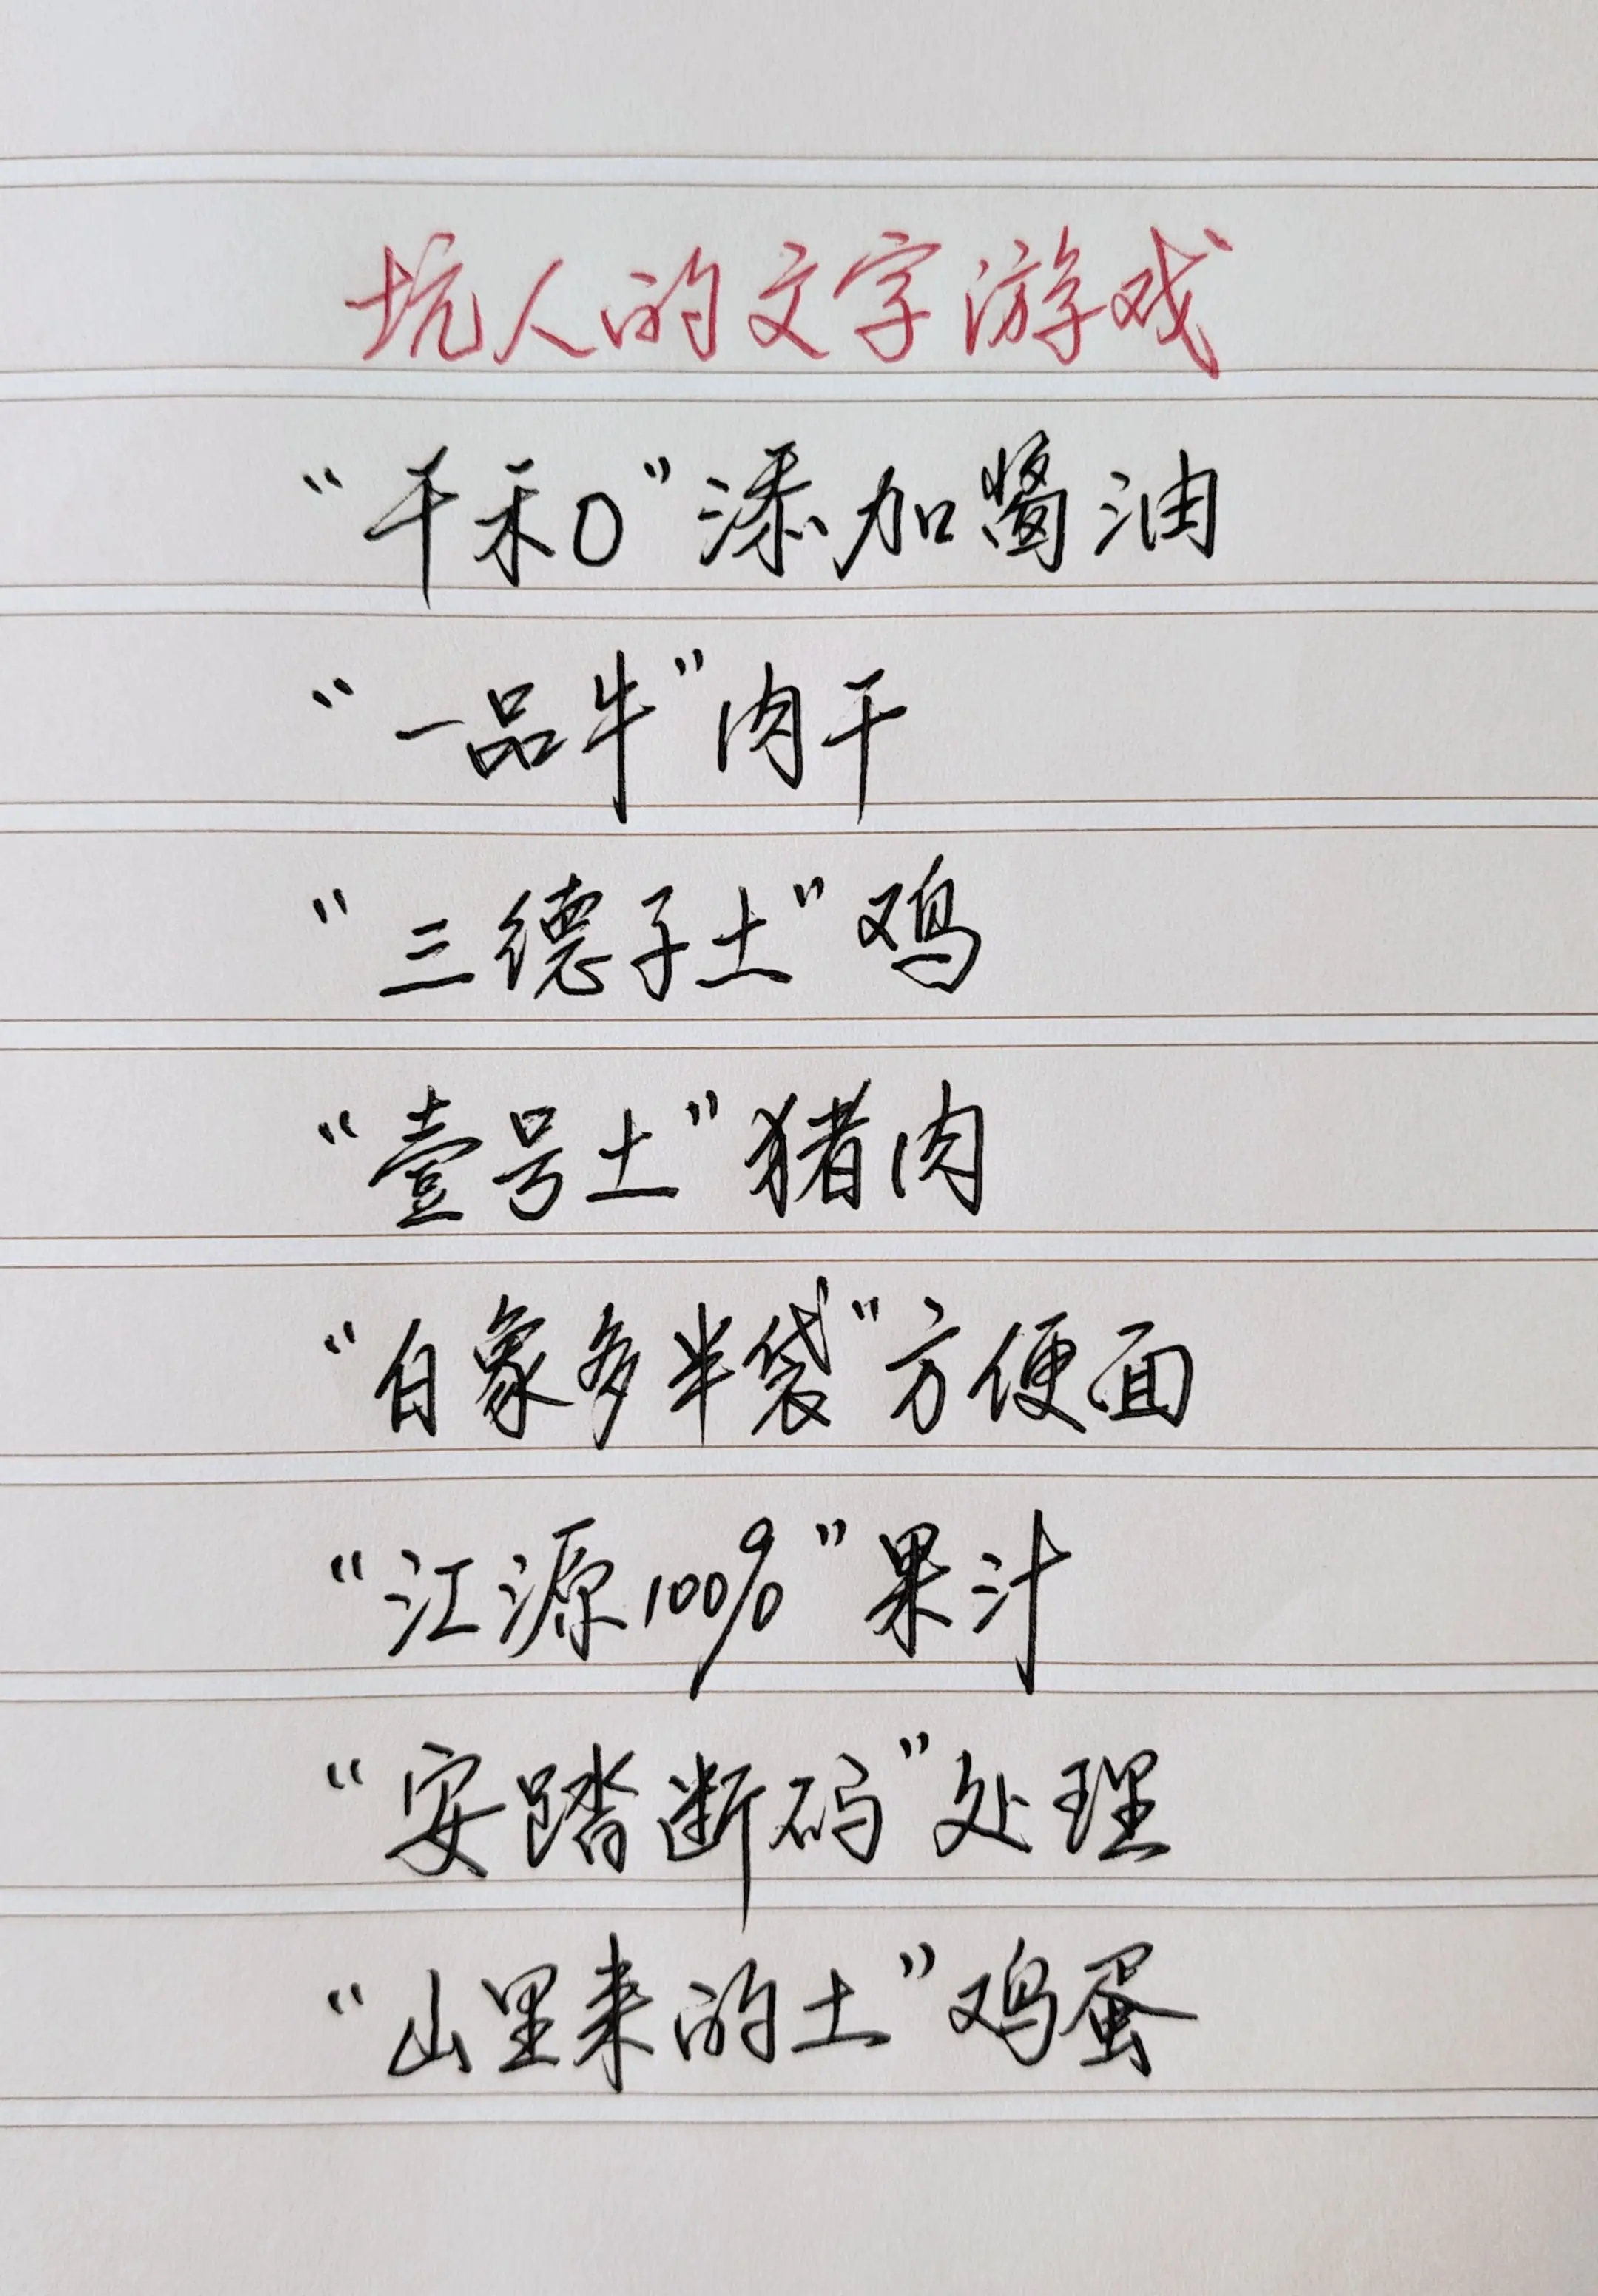 坑人的文字游戏
“千禾0”添加酱油
“一品牛”肉干
“三德子土”鸡
“壹号土”猪肉
“白象多半袋”方便面
“江源100%”果汁
“安踏断码”处理
“山里来的土”鸡蛋